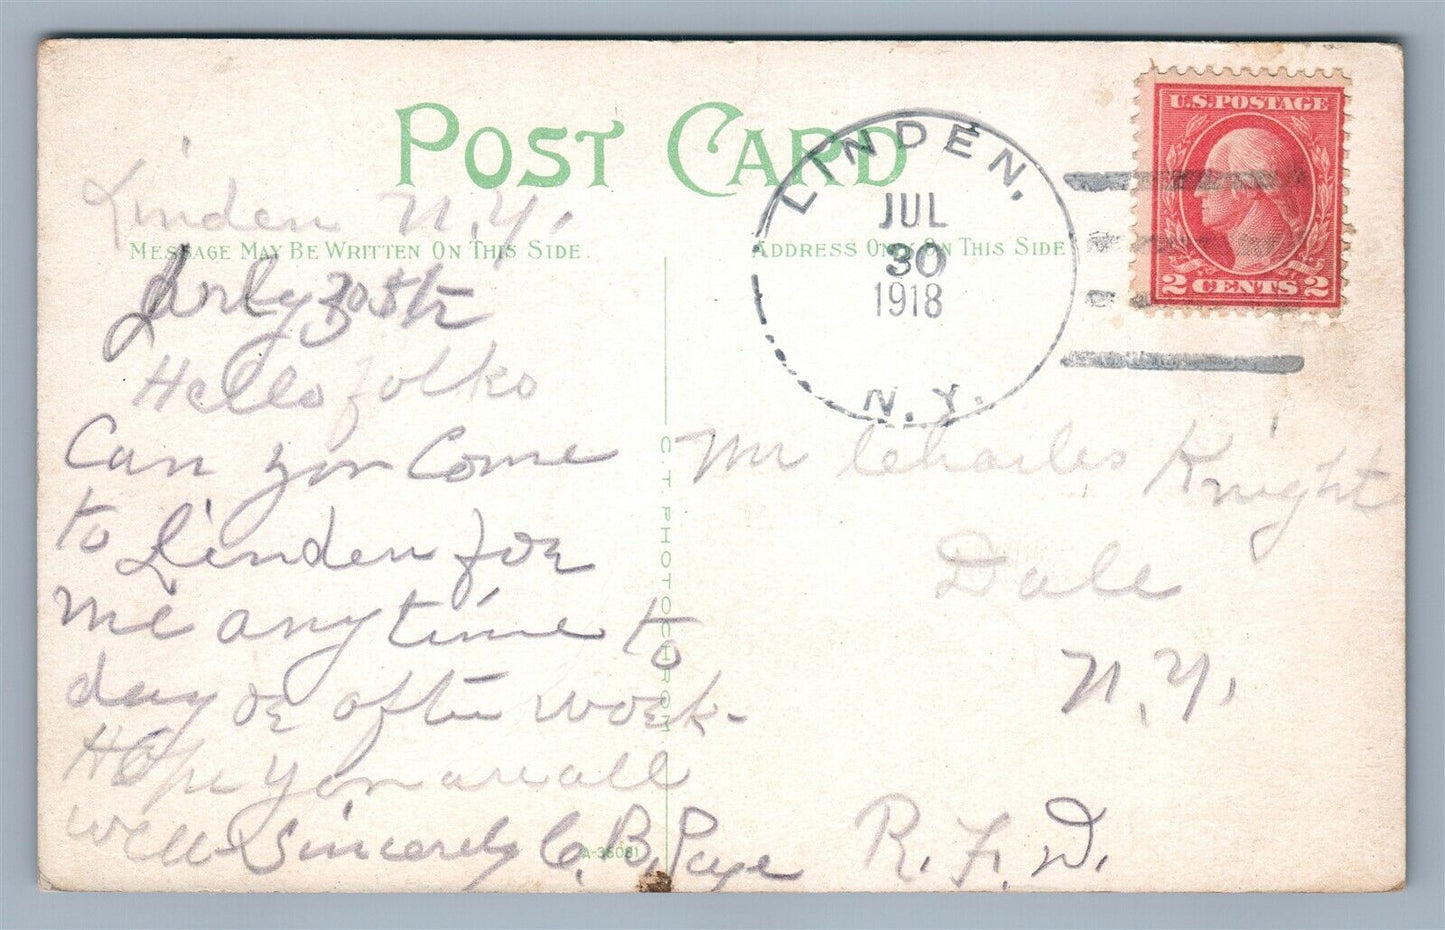 POST CARD
MESSAGE MAY BE WRITTEN ON THIS SIDE.
ADDRESS ONLY ON THIS SIDE
LINDEN,
JUL
30
1918
N.Y.
U.S. POSTAGE
2 CENTS 2
Linden N.Y.
July 30th
Hello folks
Can you Come
to Linden for
me anytime to
day or after work-
Hope you are all
well Sincerely C. B. Page
C.T. PHOTOCHROM
A-35081
Mr Charles Knight
Dale
N.Y.
R.F.D.